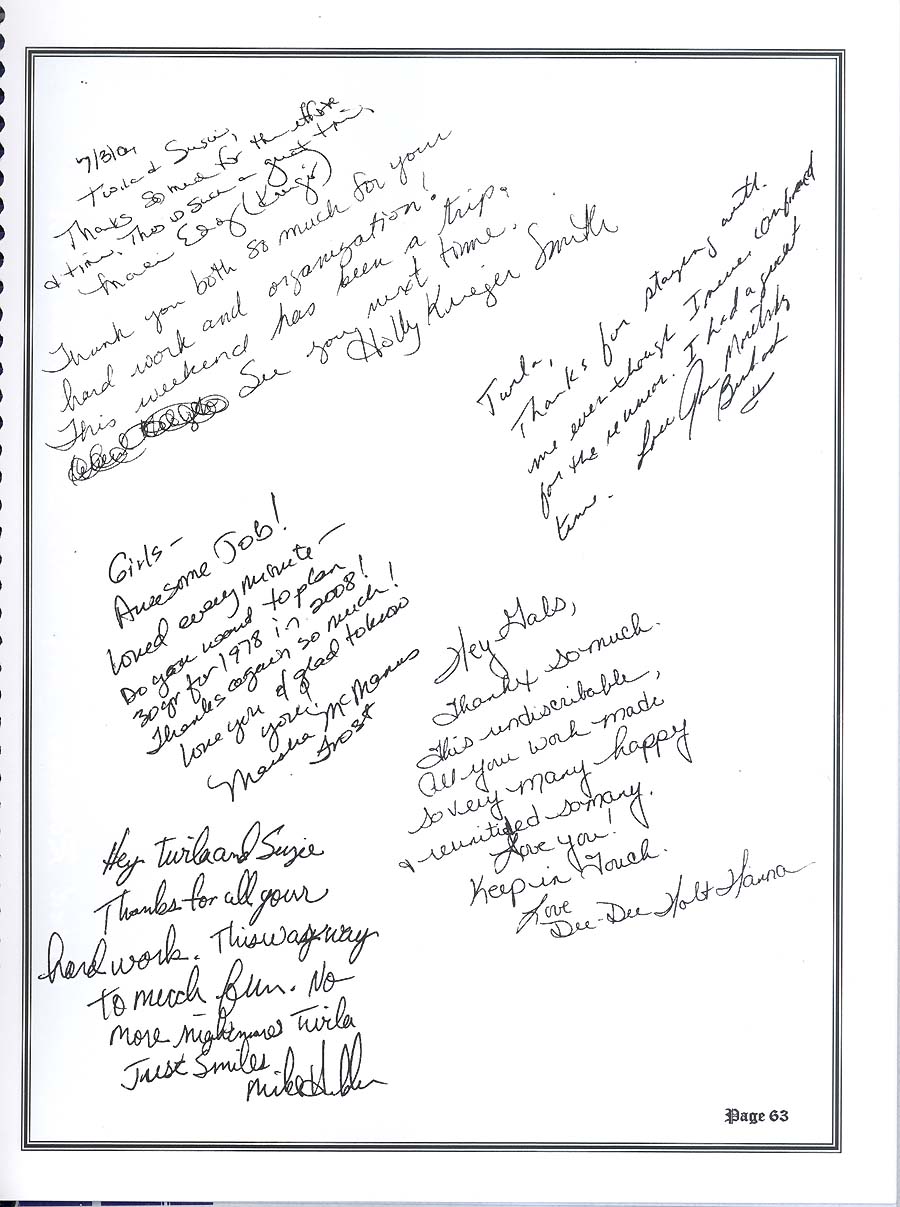 Twila & Susie,
Thanks so much for the effort
& time. This is such a great time,
(Krieger)
Thank you both so much for your
hard work and organization!
This weekend has been a trip.
See you next time.
Holly Krieger Smith
Twila,
Thanks for staying with
me even though I never confirmed
for the reunion. I had a great
time. Love
Girls -
Awesome Job!
Loved every minute -
Do you want to plan
30 yr for 1978 in 2008!
Thanks again so much!
love you & glad to know
you!
Marsha McManus
Frost
Hey Gals,
Thanks so much.
This undiscribable,
All you work made
so very many happy
& reunitided so many.
Love you!
Keep in Touch.
Love
Dee-Dee Holt Hanna
Hey Twila and Suzie
Thanks for all your
hard work. This was way
to much fun. No
more nightmares Twila
Just Smiles
Mike
Page 63